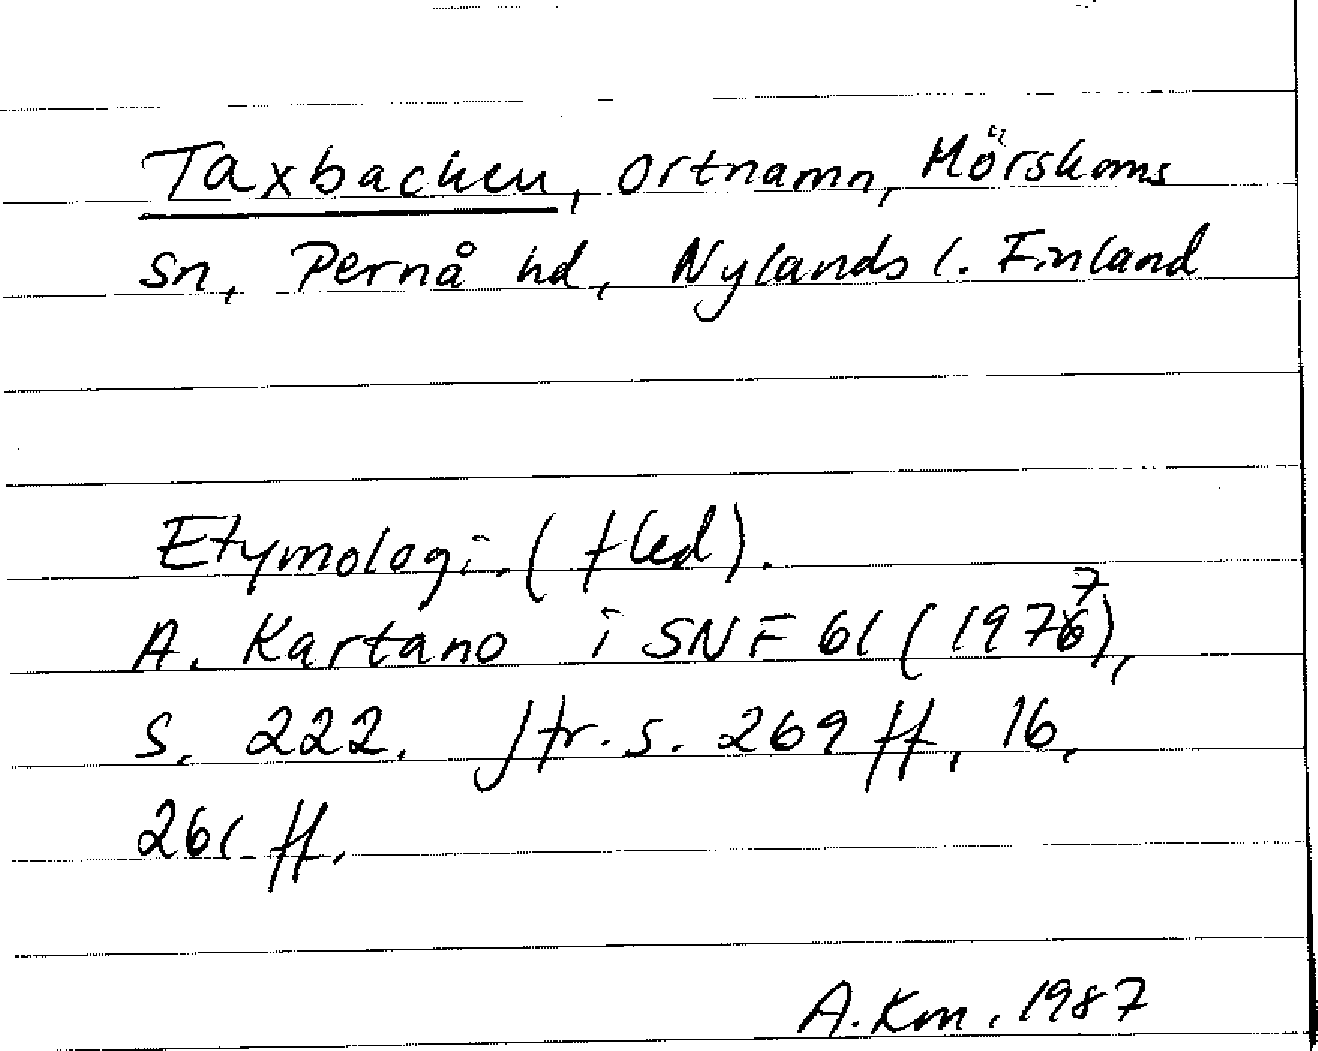 Taxbacken, ortnamn, Mörskoms
sn, Pernå hd, Nylands l. Finland
Etymologi. (fled).
A. Kartano i SNF 61 (1977),
s. 222. Jfr. s. 269 ff, 16,
261 ff.
A. Km. 1987